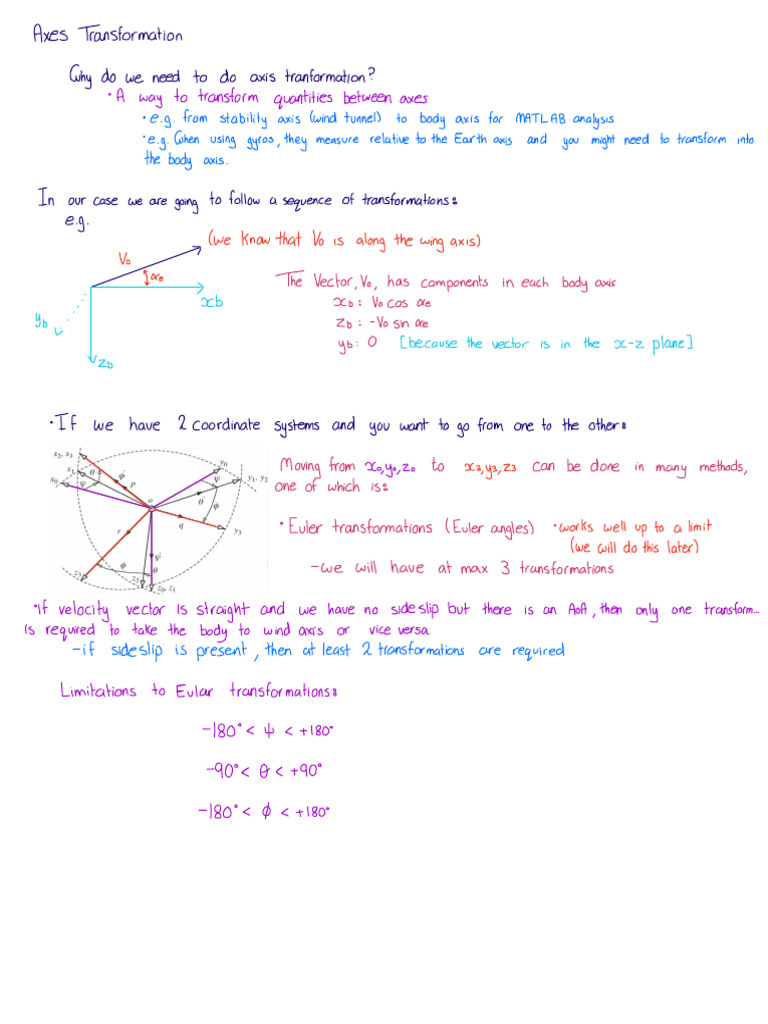 Axes Transformation
Why do we need to do axis tranformation?
• A way to transform quantities between axes
• e.g. from stability axis (wind tunnel) to body axis for MATLAB analysis
• e.g. When using gyros, they measure relative to the Earth axis and you might need to transform into
the body axis.
In our case we are going to follow a sequence of transformations:
e.g.
(we know that V₀ is along the wing axis)
V₀
αe
xb
yb
zb
The Vector, V₀, has components in each body axis
xb: V₀ cos αe
zb: -V₀ sin αe
yb: 0 [because the vector is in the x-z plane]
• If we have 2 coordinate systems and you want to go from one to the other:
x₂, x₃
x₁
x₀
θ
ψ
φ
p
o
y₀
ψ
y₁, y₂
θ
φ
q
y₃
r
ψ
φ
θ
z₃
z₂
z₀, z₁
Moving from x₀,y₀,z₀ to x₃,y₃,z₃ can be done in many methods,
one of which is:
• Euler transformations (Euler angles) • works well up to a limit
(we will do this later)
- we will have at max 3 transformations
• if velocity vector is straight and we have no sideslip but there is an AoA, then only one transform...
is required to take the body to wind axis or vice versa
- if sideslip is present, then at least 2 transformations are required
Limitations to Eular transformations:
-180° < ψ < +180°
-90° < θ < +90°
-180° < φ < +180°